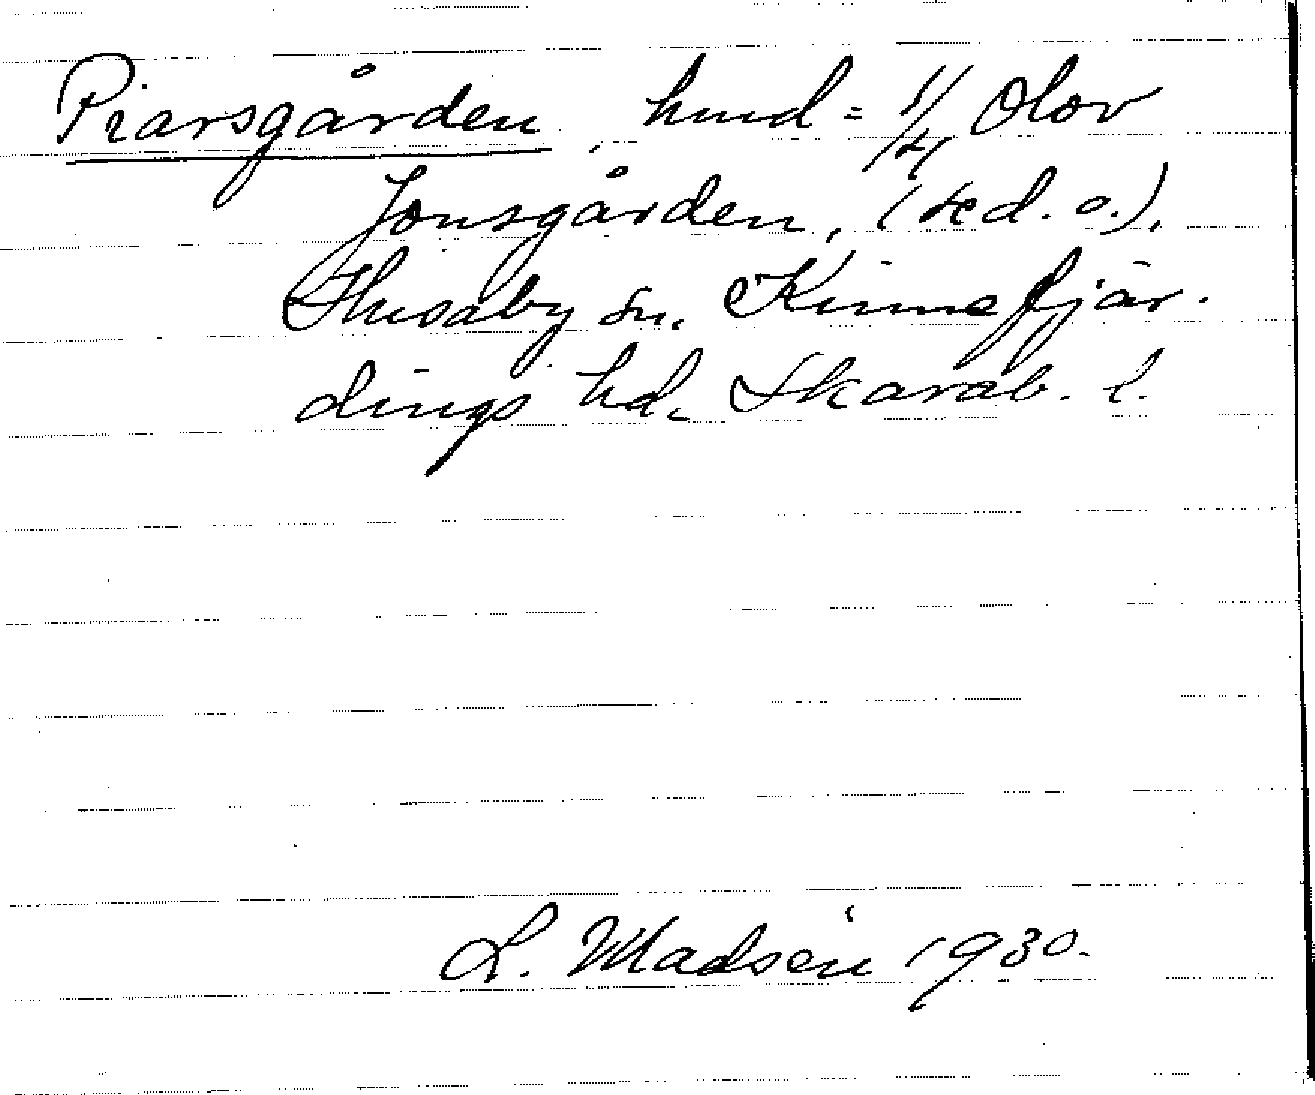 Piarsgården, hmd = 1/4 Olov
Jonsgården, (se d. o.).
Husaby sn. Kinnefjär-
dings hd. Skarab. l.
L. Madsén 1930.